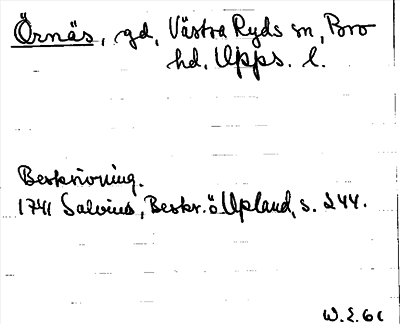 Örnäs, gd, Västra Ryds sn, Bro
hd. Upps. l.
Beskrivning.
1741 Salvius, Beskr. ö. Upland, s. 244.
W.E. 61